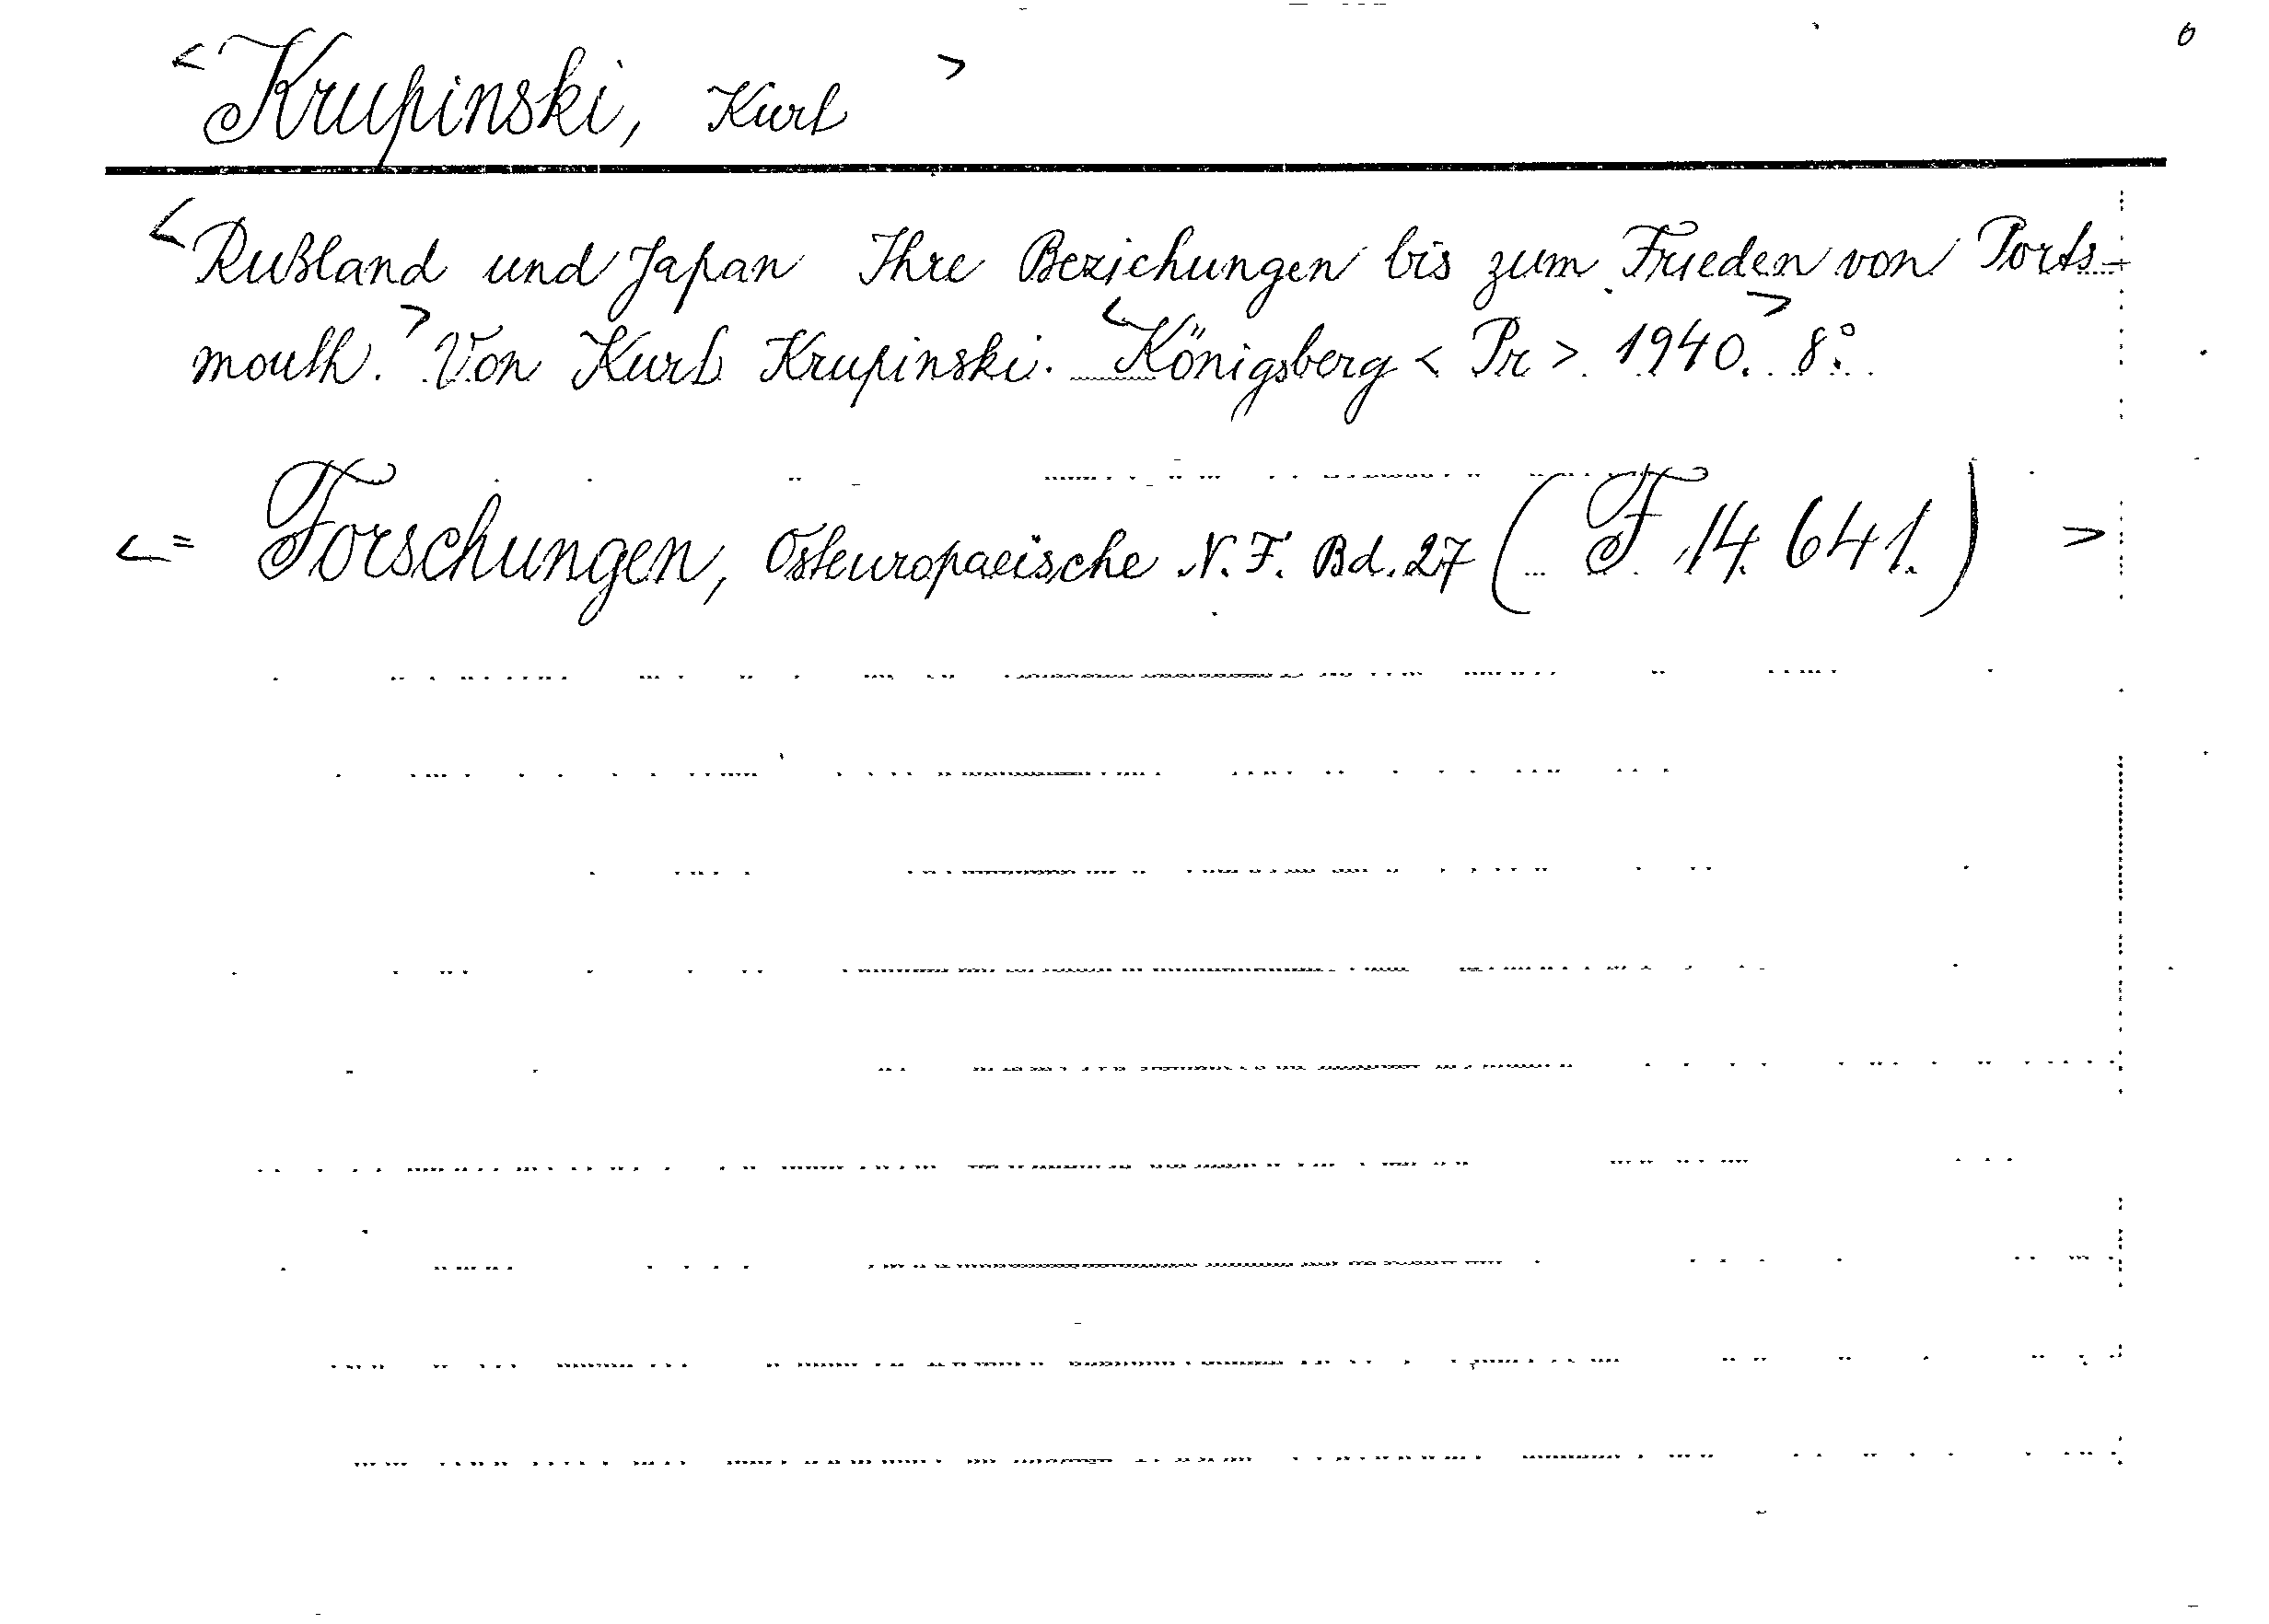 6
< Krupinski, Kurt >
< Rußland und Japan Ihre Beziehungen bis zum Frieden von Ports-
mouth. > Von Kurt Krupinski. < Königsberg < Pr > 1940. > 8°.
< = Forschungen, Osteuropaeische N. F. Bd. 27 ( F 14. 641. ) >